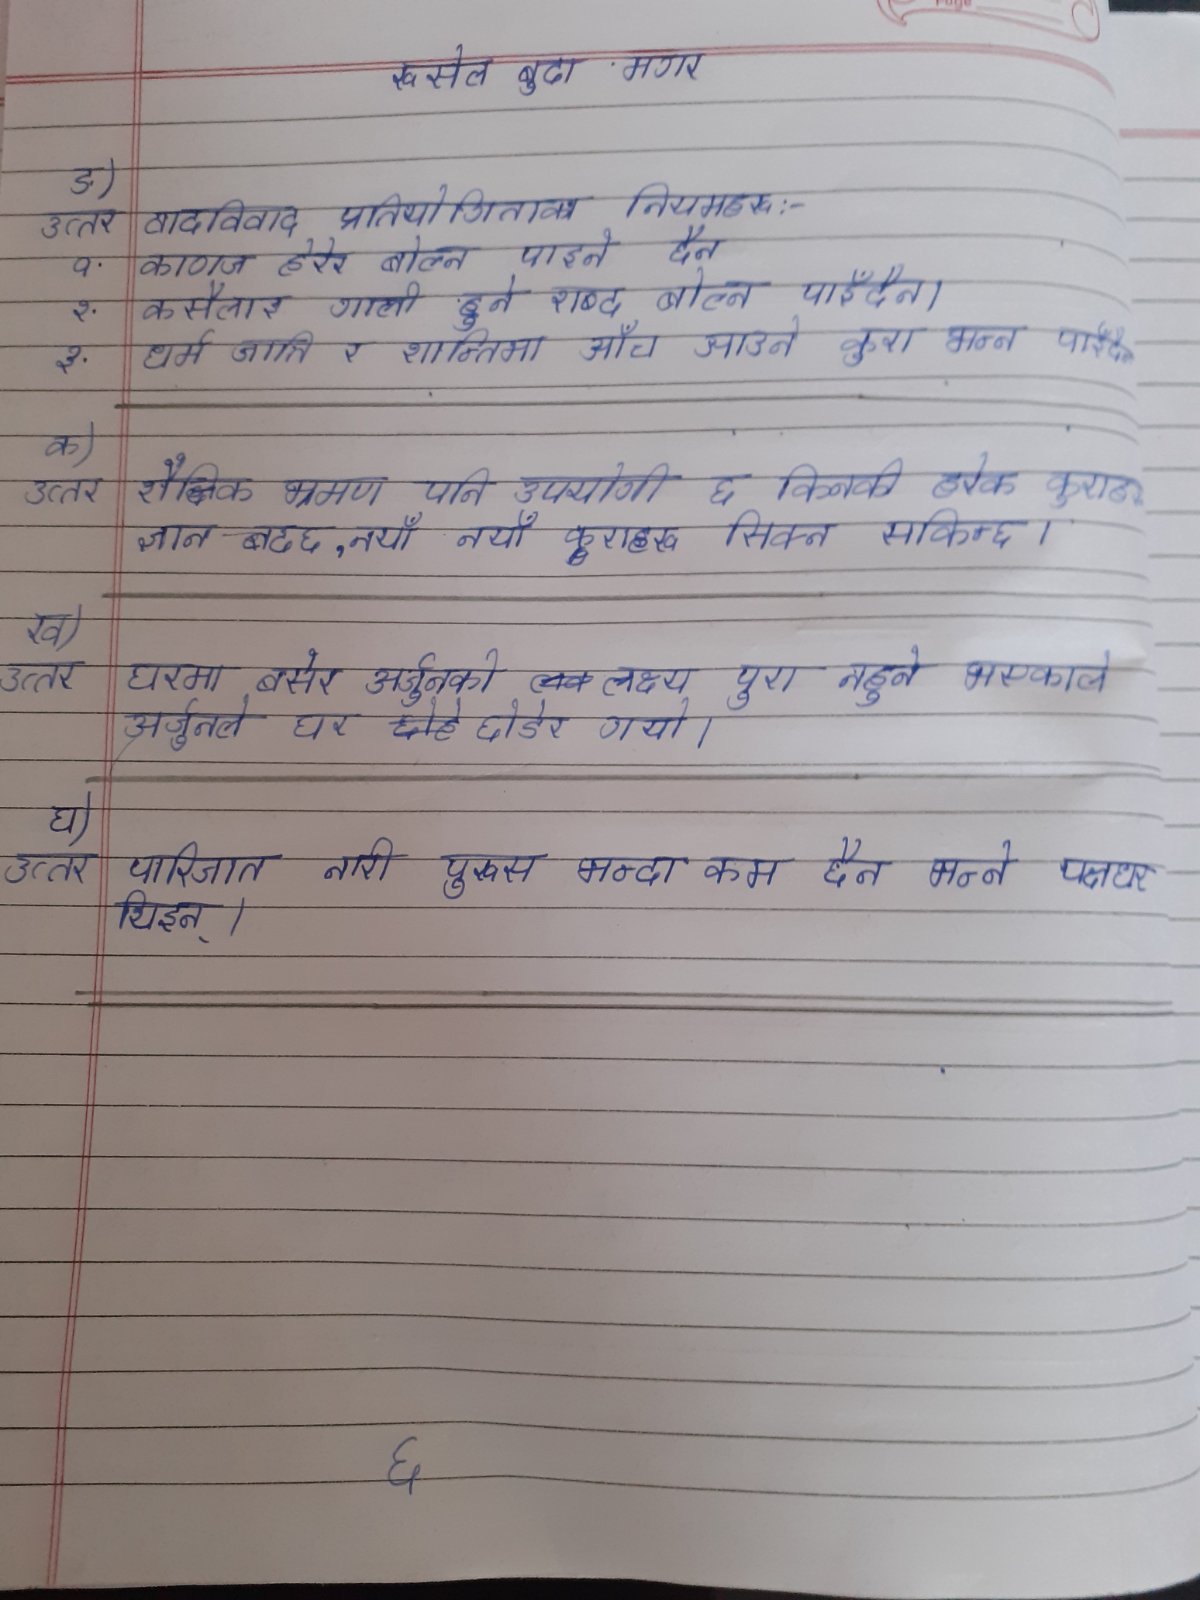 रुसेल बुढा मगर
ङ)
उत्तर वादविवाद प्रतियोगिताका नियमहरू:-
१. कागज हेरेर बोल्न पाइने छैन
२. कसैलाइ गाली हुने शब्द बोल्न पाइँदैन।
३. धर्म जाति र शान्तिमा आँच आउने कुरा भन्न पाइँदैन
क)
उत्तर शैक्षिक भ्रमण पनि उपयोगी छ किनकी हरेक कुराहरू
ज्ञान बढ्छ, नयाँ नयाँ कुराहरू सिक्न सकिन्छ।
ख)
उत्तर घरमा बसेर अर्जुनको लक्ष्य पुरा नहुने भएकाले
अर्जुनले घर छोडेर गयो।
घ)
उत्तर पारिजात नारी पुरुस भन्दा कम छैन भन्ने पक्षधर
थिइन्।
६